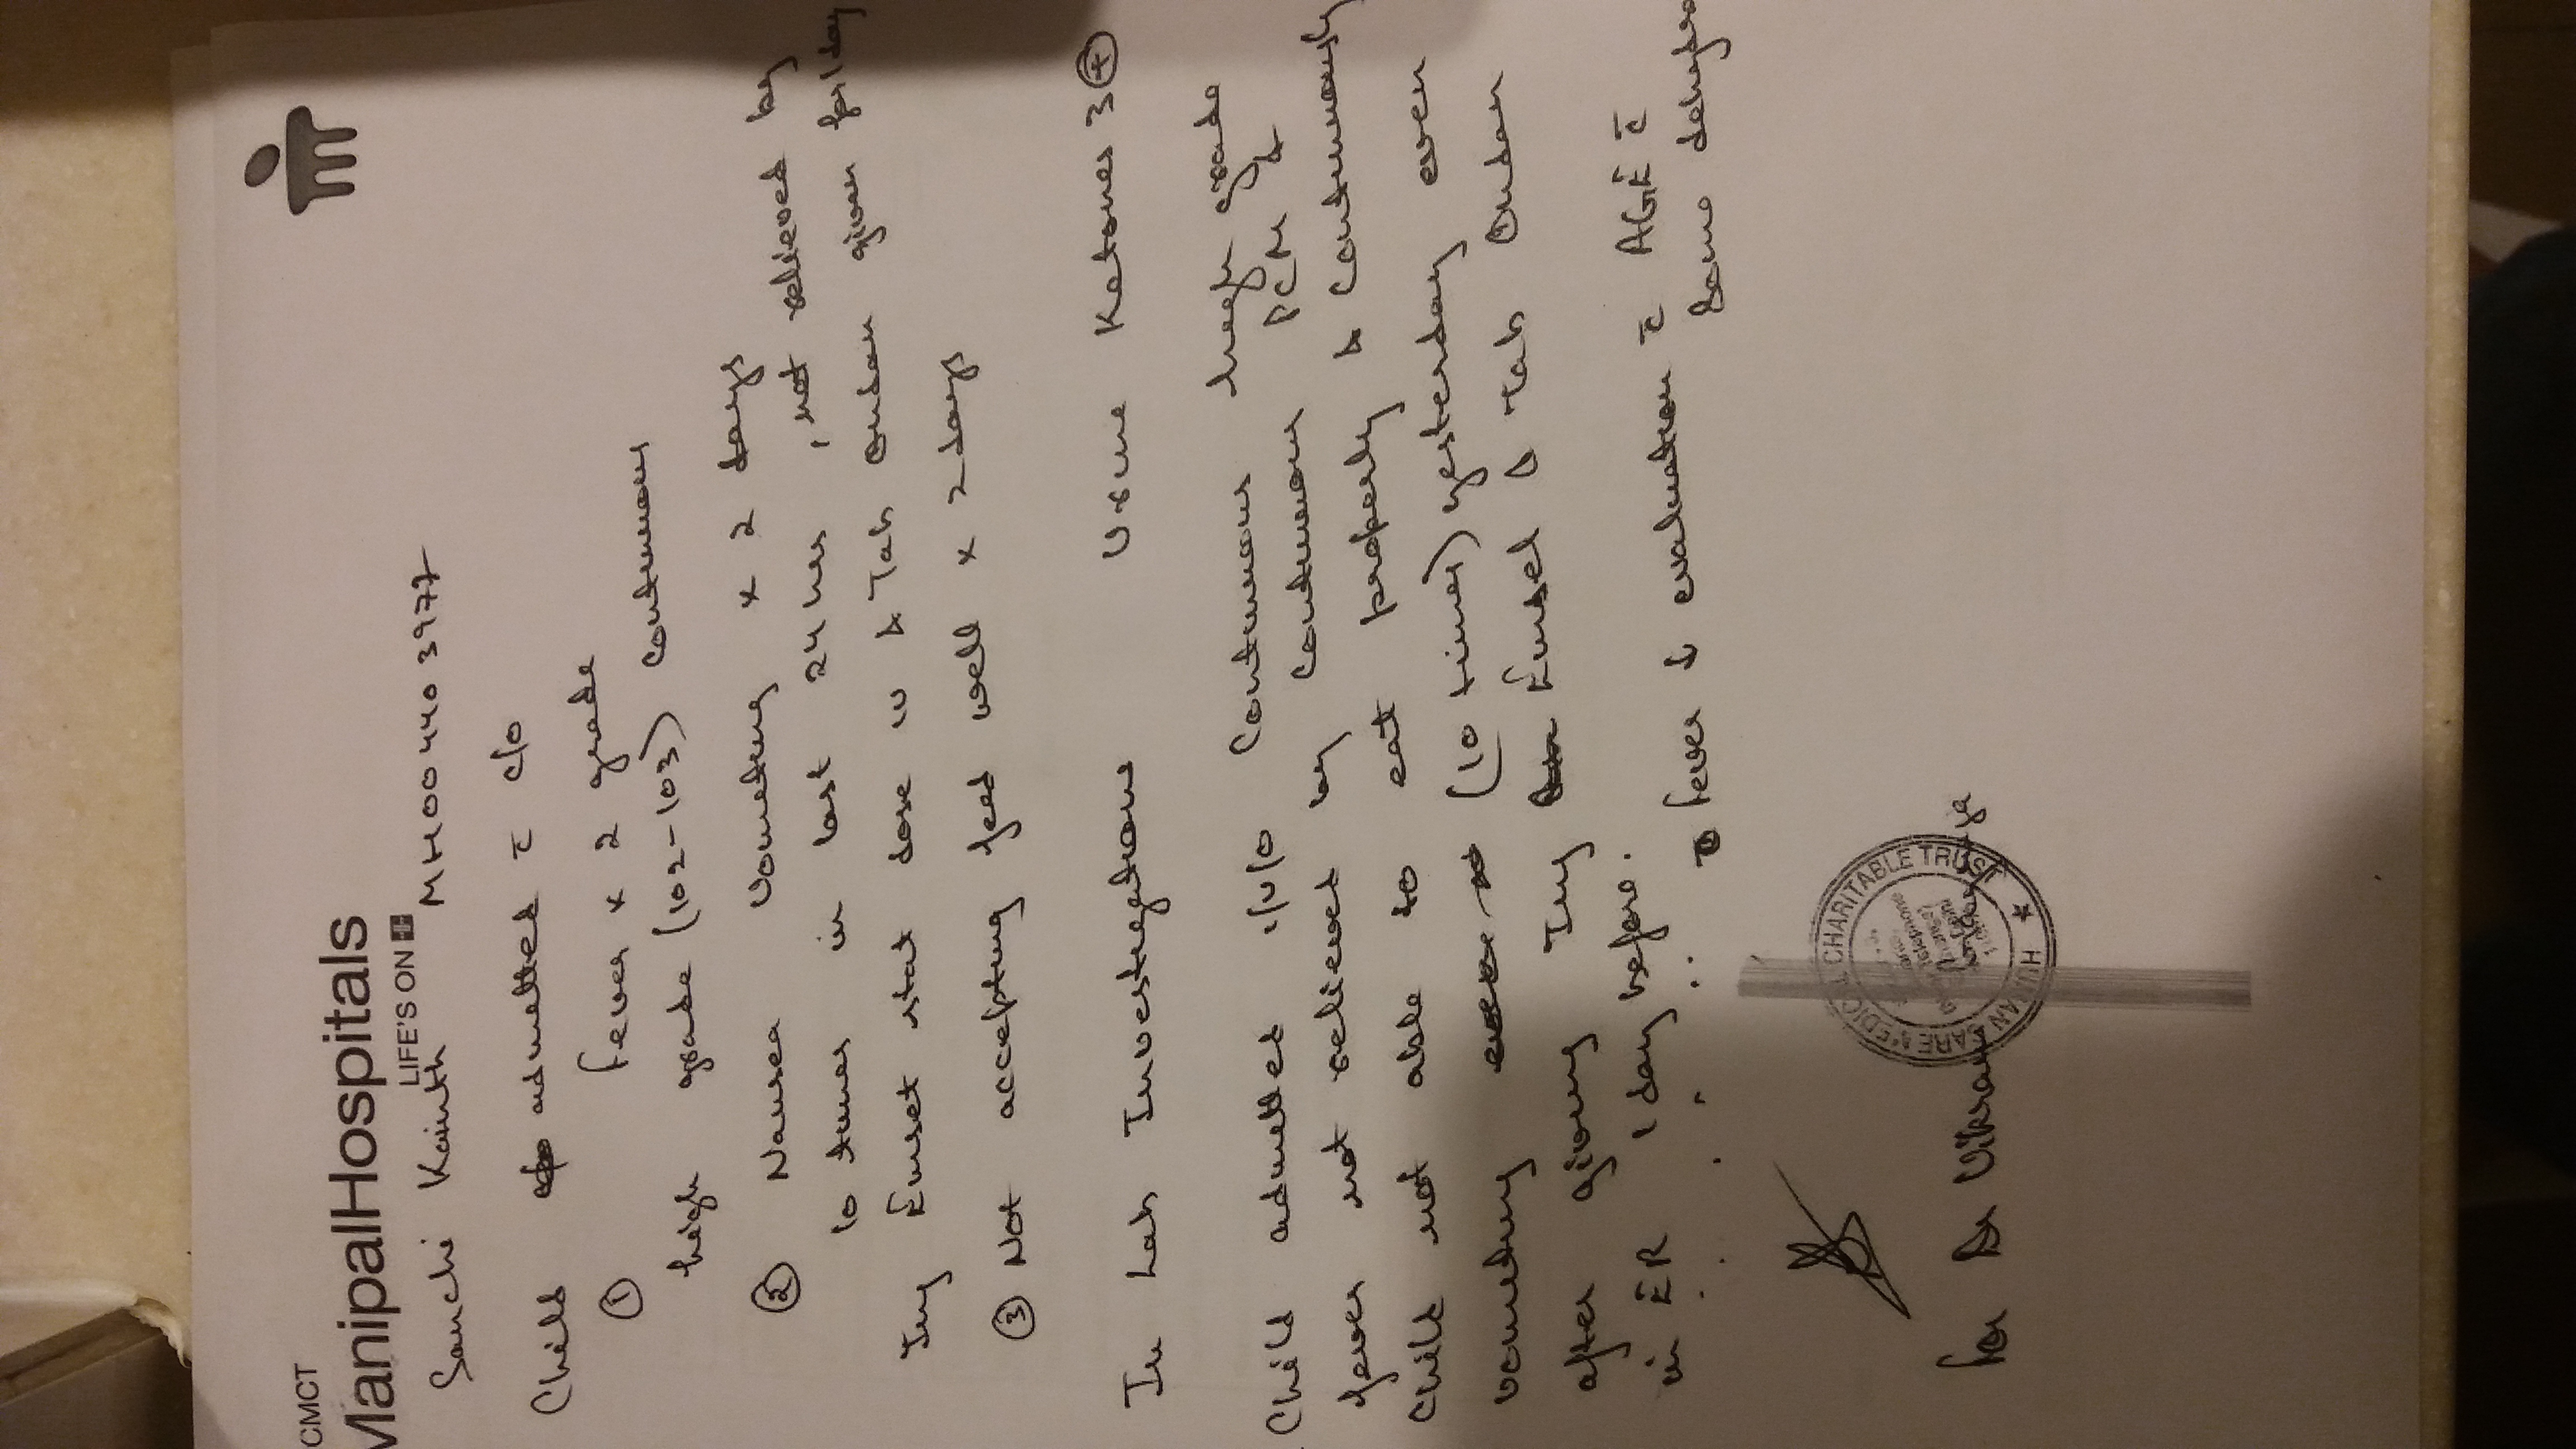 CMCT
ManipalHospitals
LIFE'S ON
Sanchi Kainth MH004403977
Child admitted c̄ c/o
① fever x 2 grade
high grade (102-103) continuous
② Nausea vomiting x 2 days
10 times in last 24 hrs , not relieved by
Inj Emset stat dose & Tab Ondan given for 1 day
③ Not accepting feed well x 2 days
In Lab Investigations Urine Ketones 3⊕
Child admitted i/v/o Continuous high grade
fever not relieved by continuous PCM &
Child not able to eat properly & continuously
vomiting (10 times) yesterday even
after giving Inj Emset & Tab Ondan
in ER 1 day before.
∴ fever evaluation c̄ AGE c̄
Some dehydra
for Dr Vikram
HUMAN CARE MEDICAL CHARITABLE TRUST